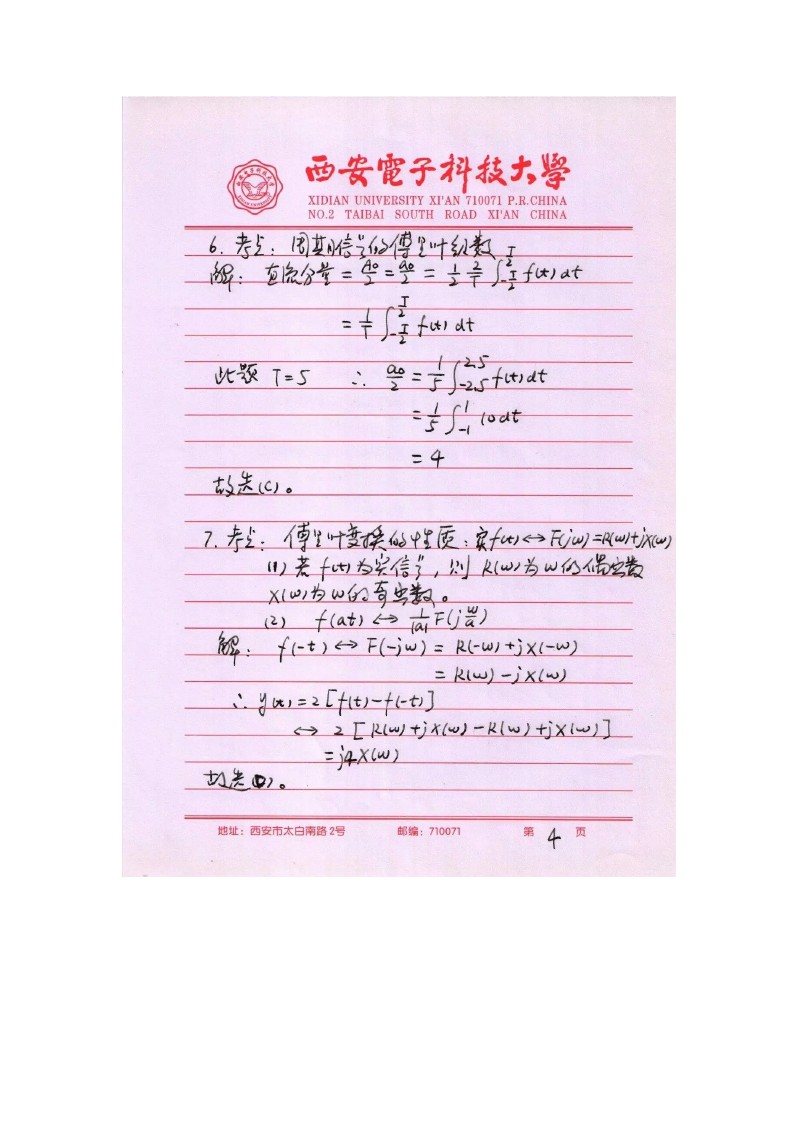 西安電子科技大學
XIDIAN UNIVERSITY XI'AN 710071 P.R.CHINA
NO.2 TAIBAI SOUTH ROAD XI'AN CHINA
6. 考点: 周期信号的傅里叶级数
解: 直流分量 = A₀/2 = a₀/2 = 1/2 · 2/T ∫_{-T/2}^{T/2} f(t) dt
= 1/T ∫_{-T/2}^{T/2} f(t) dt
此题 T=5 ∴ a₀/2 = 1/5 ∫_{-2.5}^{2.5} f(t) dt
= 1/5 ∫_{-1}^{1} 10 dt
= 4
故选(C)。
7. 考点: 傅里叶变换的性质: 实f(t) ↔ F(jω) = R(ω)+jX(ω)
(1) 若 f(t) 为实信号, 则 R(ω) 为 ω 的偶函数
X(ω) 为 ω 的奇函数。
(2) f(at) ↔ 1/|a| F(j ω/a)
解: f(-t) ↔ F(-jω) = R(-ω)+jX(-ω)
= R(ω)-jX(ω)
∴ y(t) = 2[f(t)-f(-t)]
↔ 2[R(ω)+jX(ω)-R(ω)+jX(ω)]
= j4X(ω)
故选(D)。
地址: 西安市太白南路2号 邮编: 710071 第 4 页